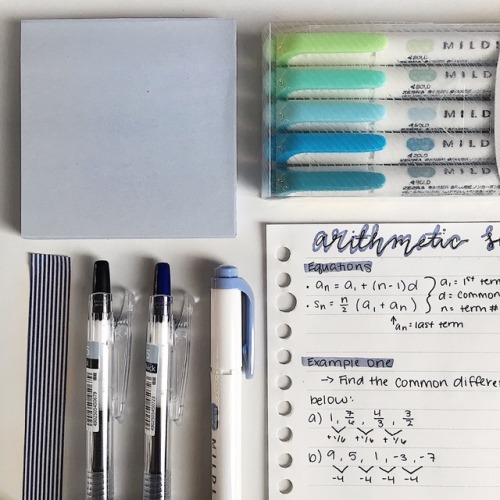 MILD
MILD
MILD
MILD
MILD
arithmetic
Equations
· an = a1 + (n-1)d } a1 = 1st term
· Sn = n/2 (a1 + an) d = common
n = term #
↑ an = last term
Example one
→ Find the common differe
below:
a) 1, 7/6, 4/3, 3/2
+1/6 +1/6 +1/6
b) 9, 5, 1, -3, -7
-4 -4 -4 -4
MILD